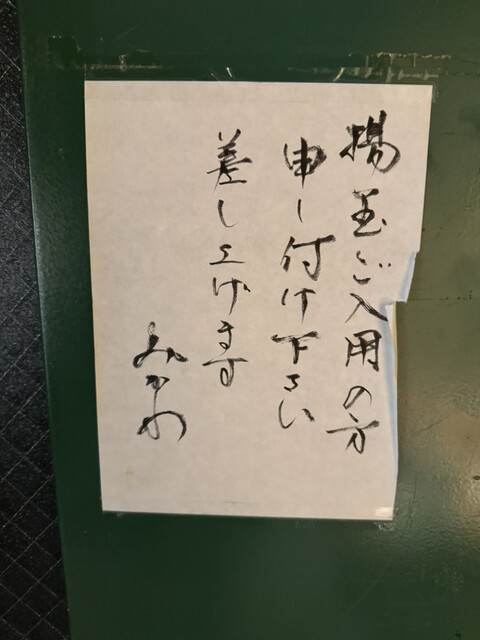 揚玉ご入用の方
申し付け下さい
差し上げます
みかわ